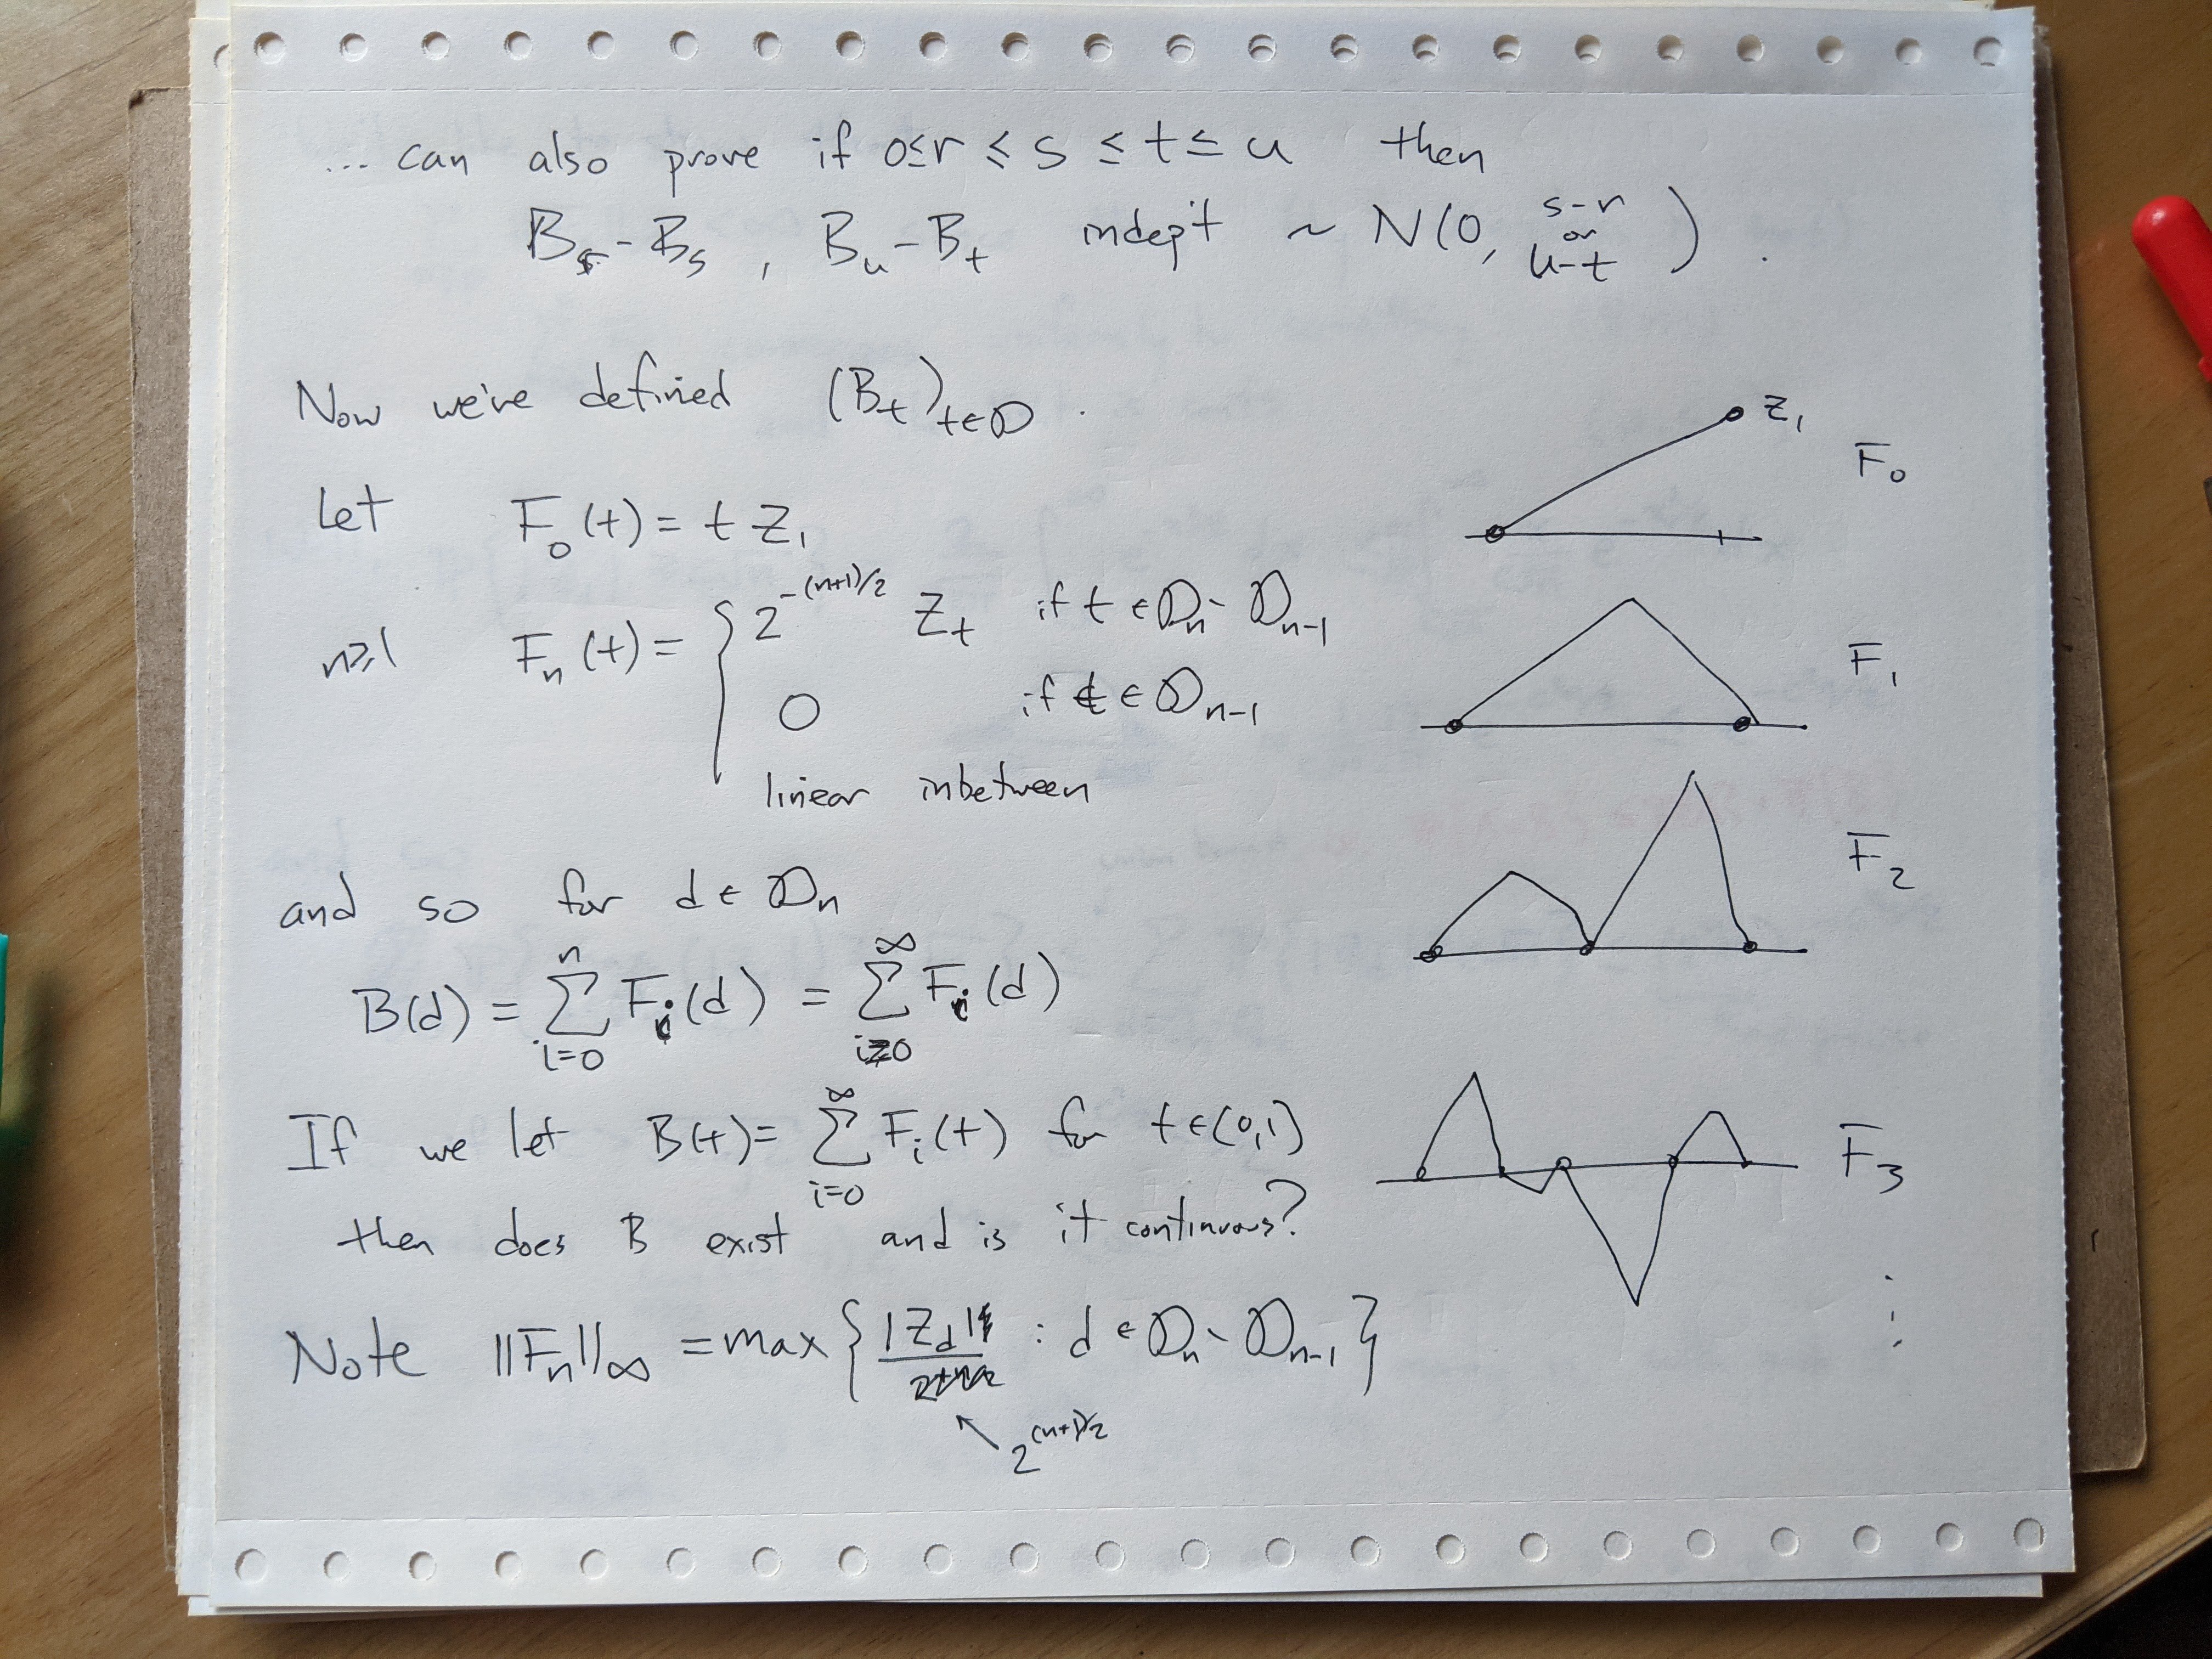 ... can also prove if 0≤r ≤ s ≤ t ≤ u then
B_r - B_s , B_u - B_t indep't ~ N(0, s-r or u-t ) .
Now we've defined (B_t)_{t∈𝔻} .
Let F_0(t) = t Z_1
n≥1 F_n(t) = { 2^{-(n+1)/2} Z_t if t ∈ 𝔻_n \ 𝔻_{n-1}
0 if t ∈ 𝔻_{n-1}
linear inbetween
Z_1 F_0
F_1
F_2
F_3
⋮
and so for d ∈ 𝔻_n
B(d) = ∑_{i=0}^{n} F_i(d) = ∑_{i=0}^{∞} F_i(d)
If we let B(t) = ∑_{i=0}^{∞} F_i(t) for t∈(0,1)
then does B exist and is it continuous?
Note ||F_n||_∞ = max { |Z_d| / : d ∈ 𝔻_n \ 𝔻_{n-1} }
↖ 2^{(n+1)/2}